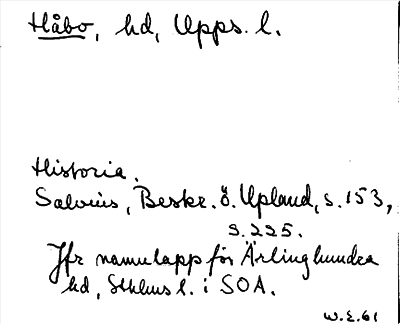 Håbo, hd, Upps. l.
Historia.
Salvius, Beskr. ö. Upland, s. 153,
s. 225.
Jfr namnlapp för Ärlinghundra
hd, Sthlms l. i SOA.
W.E. 61